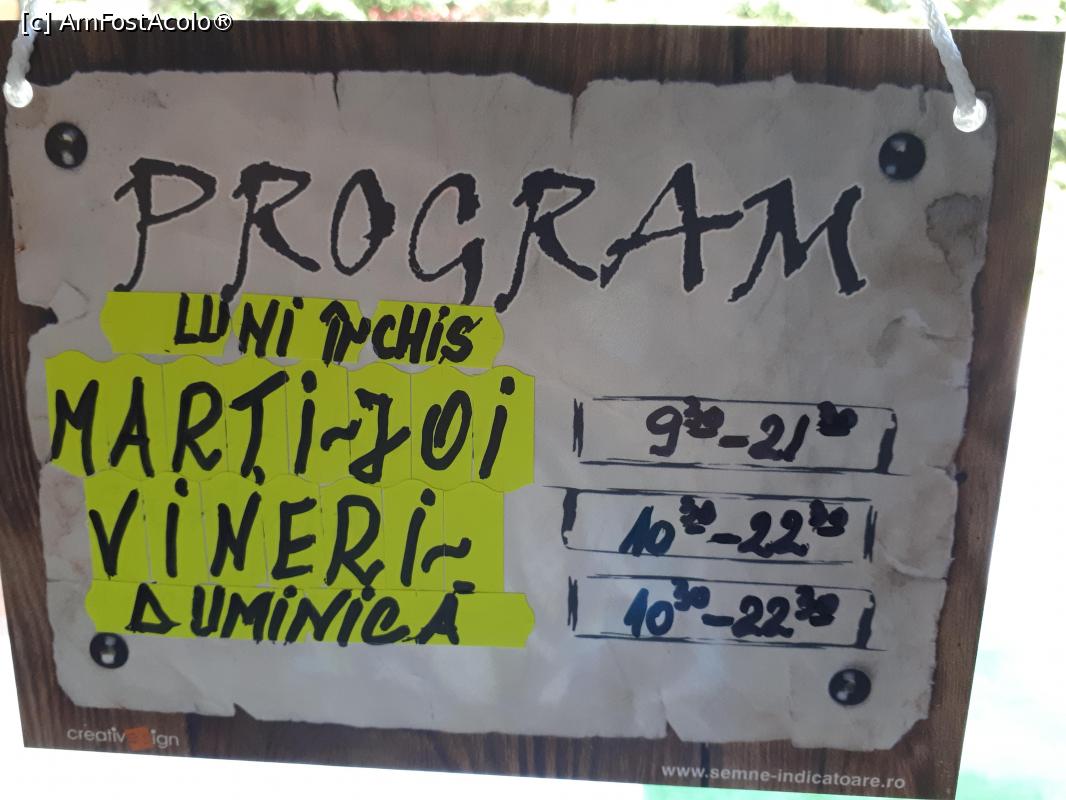 [c] AmFostAcolo®
PROGRAM
LUNI ÎNCHIS
MARȚI~JOI 9³⁰-21³⁰
VINERI~ 10³⁰-22³⁰
DUMINICĂ 10³⁰-22³⁰
www.semne-indicatoare.ro